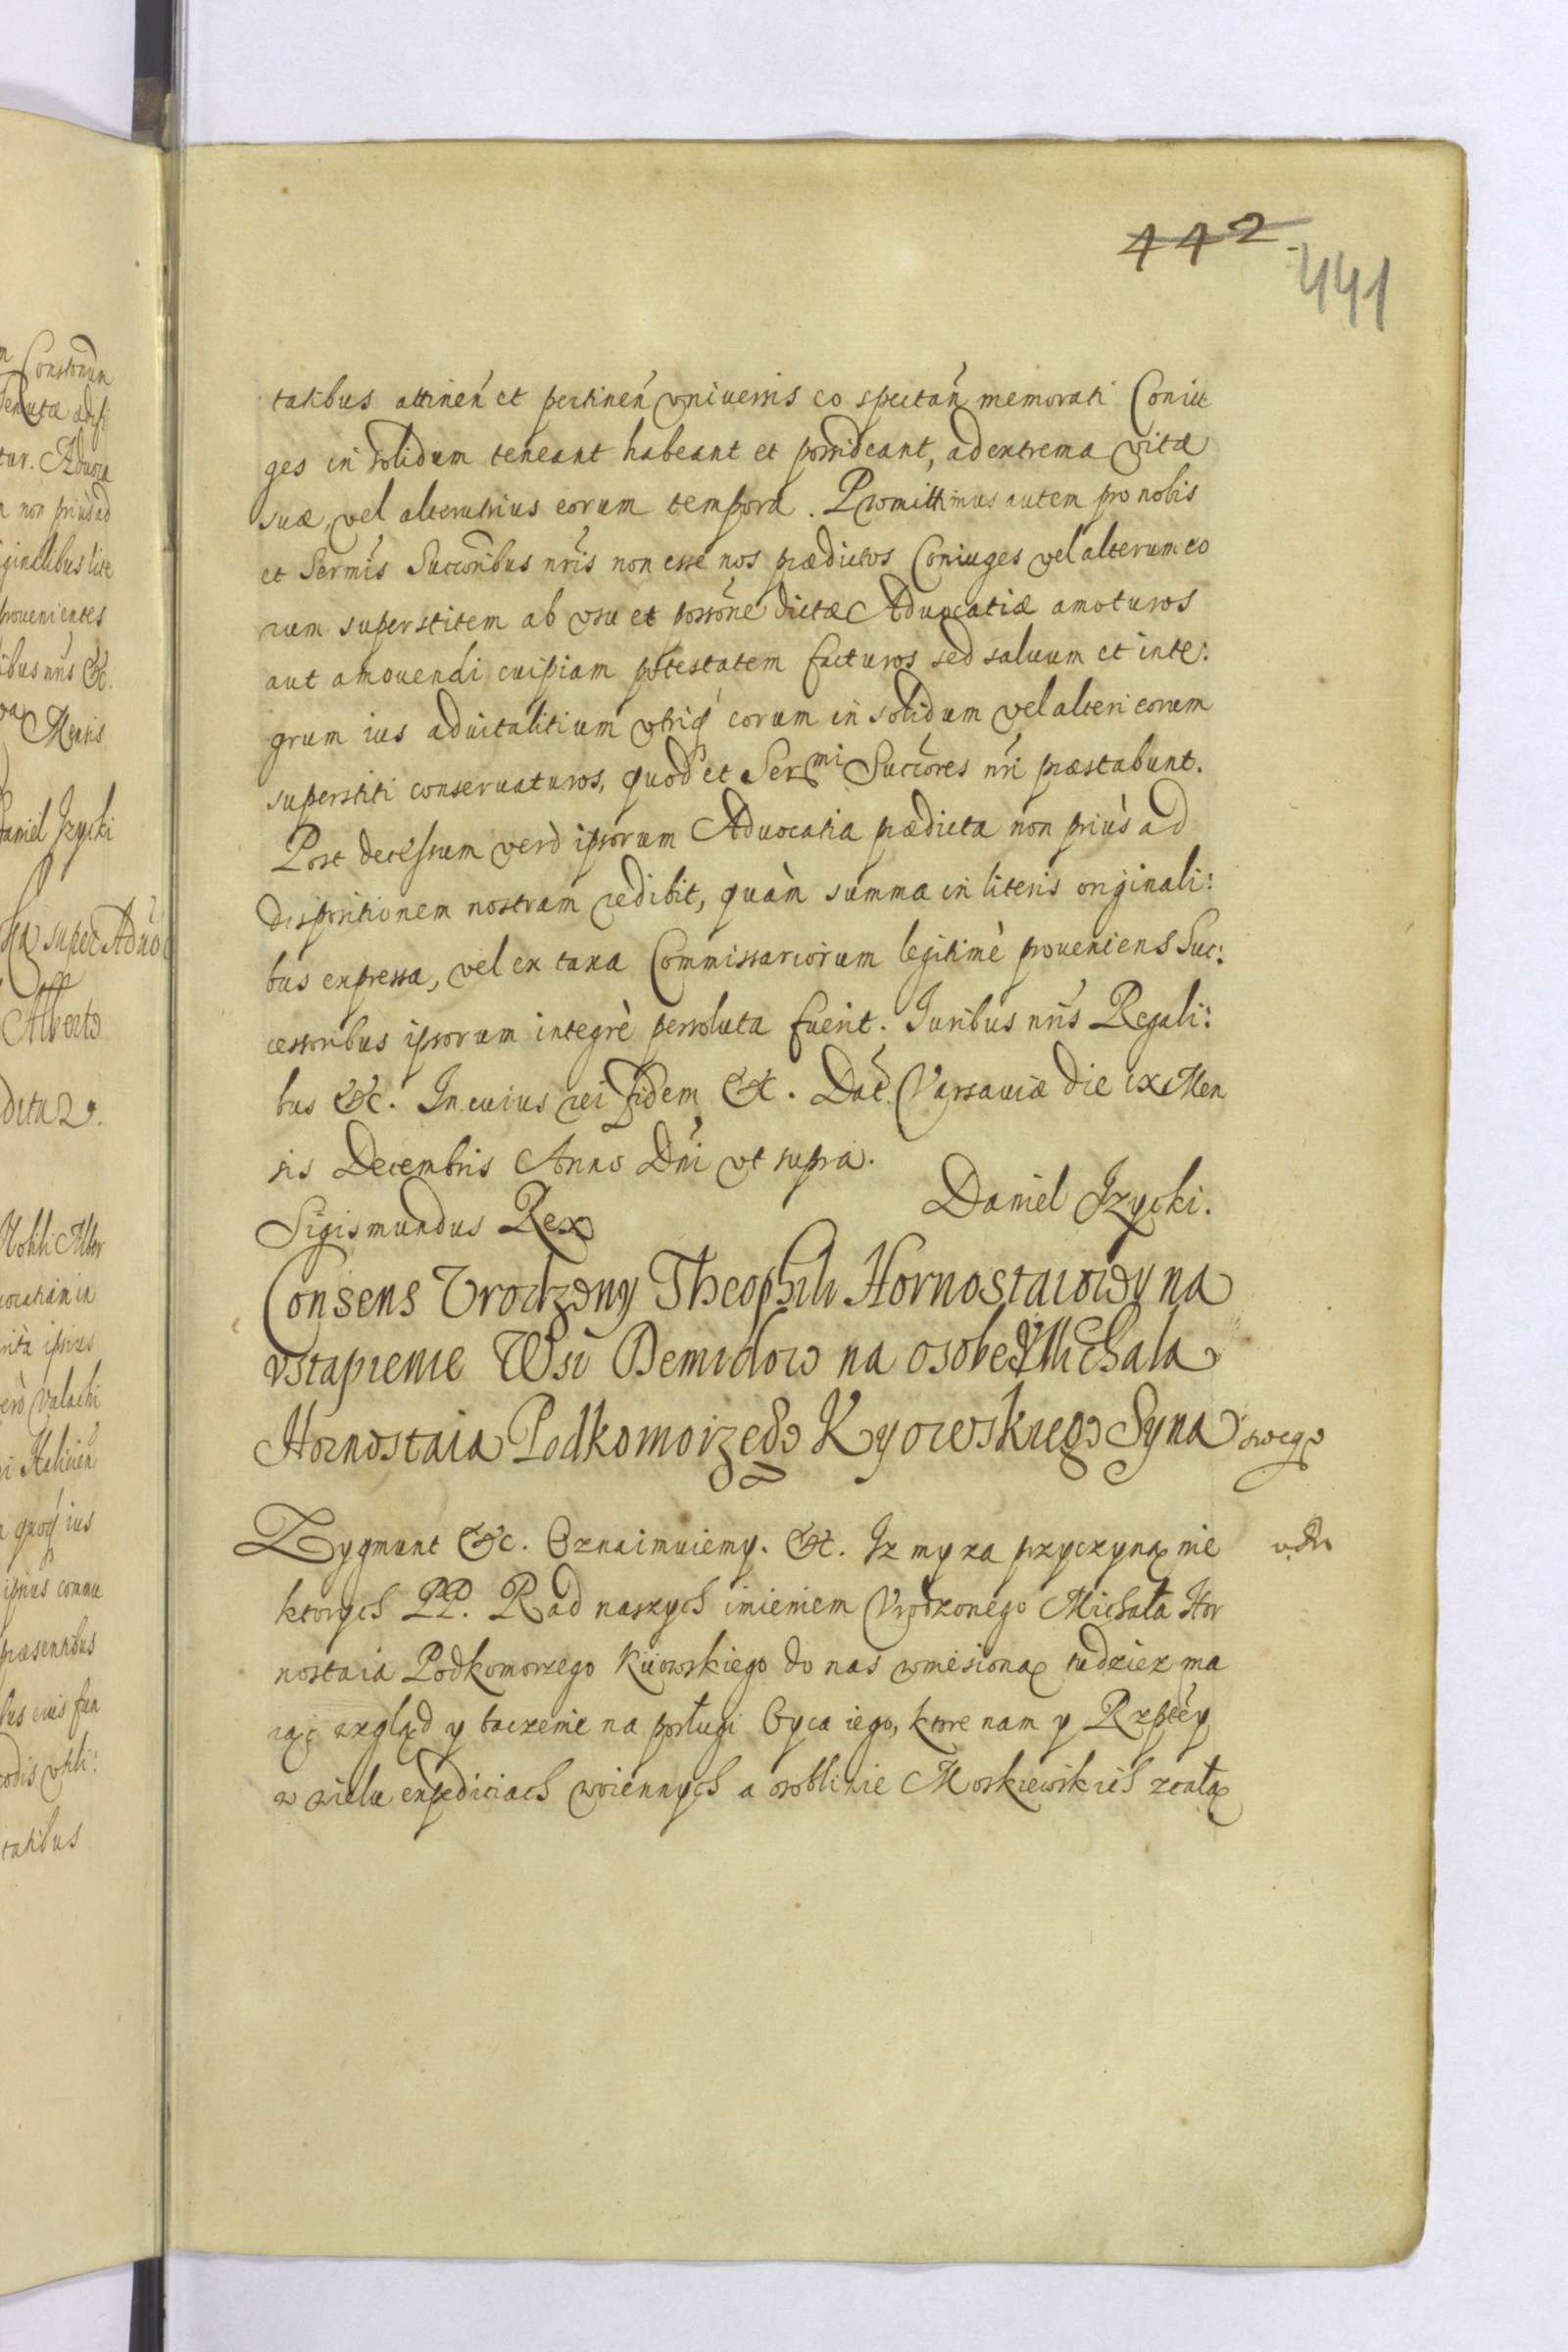 442
441
talibus attineń et pertineń vniuersis eo spectań memorati Coniu
ges in solidum teneant habeant et possideant, ad extrema vitæ
suæ, vel alterutrius eorum tempora. Promittimus autem pro nobis
et Sermis Succoribus nris non esse nos prædictos Coniuges vel alterum eo
rum superstitem ab vsu et possone dictæ Aduocatiæ amoturos
aut amouendi cuipiam potestatem facturos sed saluum et inte:
grum ius aduitalitium vtriq́ eorum in solidum vel alteri eorum
superstiti conseruaturos, quod et Sermi Succores nri præstabunt.
Post decessum verò ipsorum Aduocatia prædicta non priùs ad
dispositionem nostram redibit, quàm summa in literis originali:
bus expressa, vel ex taxa Commissariorum legitimè proueniens Suc:
cessoribus ipsorum integrè persoluta fuerit. Iuribus nris Regali:
bus &c. In cuius rei fidem &c. Dat. Varsauiæ die ix Men
sis Decembris Anno Dni vt supra.
Sigismundus Rex
Daniel Izycki.
Consens Vrodzony Theophili Hornostaiowy na
vstapienie Wsi Demidow na osobe Michala
Hornostaia Podkomorzego Kyowskiego Syna swego
Zygmunt &c. Oznaimuiemy. &c. Iz my za przyczyną nie
ktorych PP. Rad naszych imieniem Vrodzonego Michała Hor
nostaia Podkomorzego Kiiowskiego do nas wniesioną tudziez ma
iąc wzgląd y baczenie na posługi Oyca iego, ktore nam y Rzptey
w wielu expediciach woiennych a osobliwie Moskiewskich z cnotą